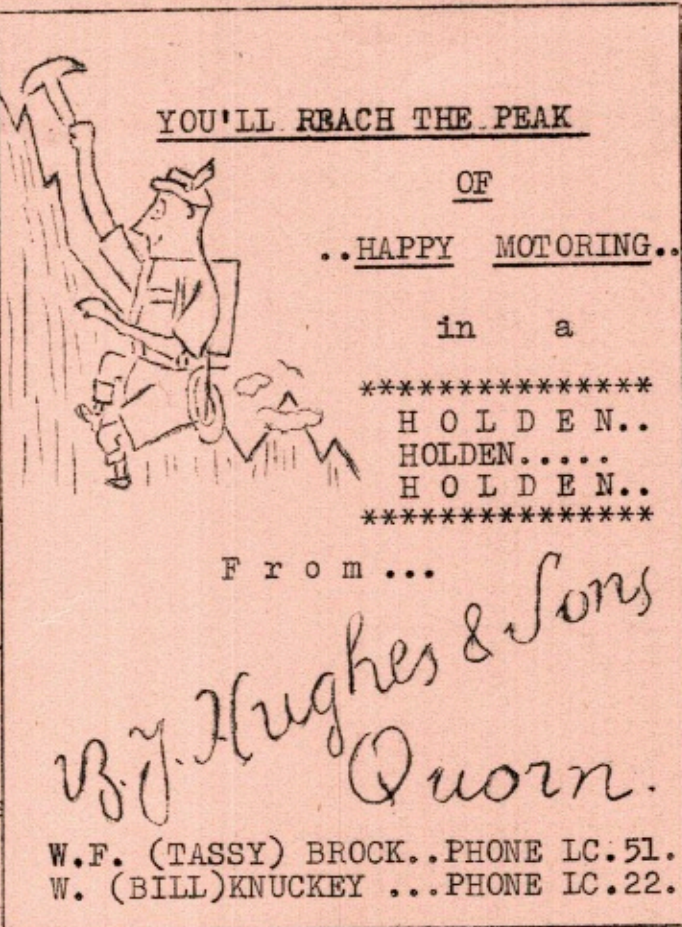 YOU'LL REACH THE PEAK
OF
..HAPPY MOTORING..
in a
***************
H O L D E N..
HOLDEN.....
H O L D E N..
***************
F r o m ...
B.J. Hughes & Sons
Quorn.
W.F. (TASSY) BROCK..PHONE LC.51.
W. (BILL)KNUCKEY ...PHONE LC.22.